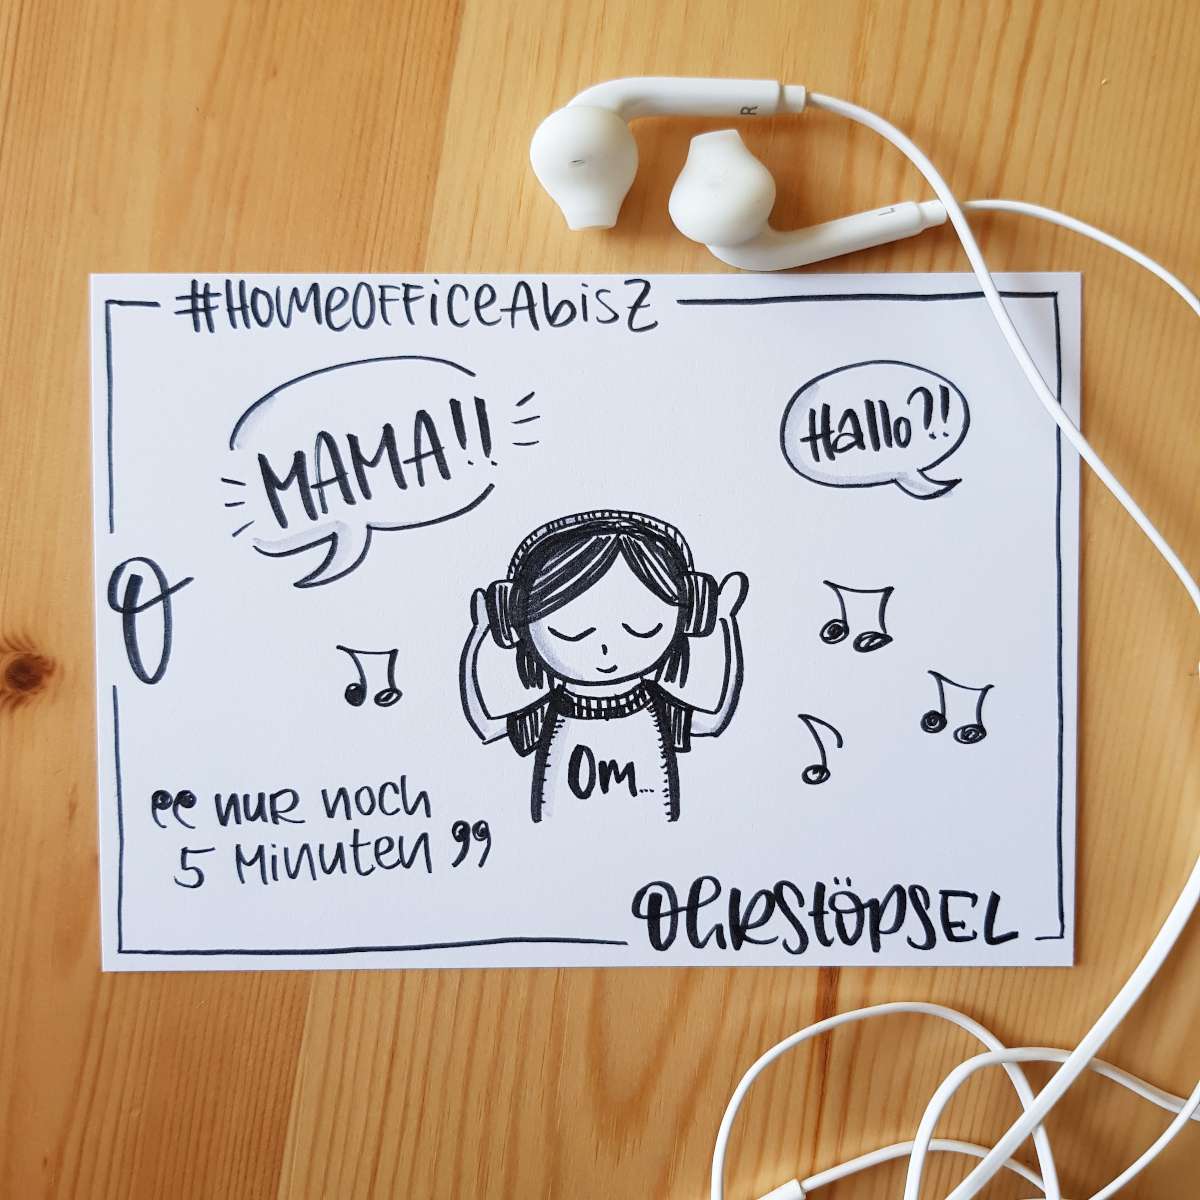 R
L
#HOMEOFFICEAbisZ
MAMA!!
Hallo?!
O
Om...
„nur noch
5 Minuten"
OHRSTÖPSEL